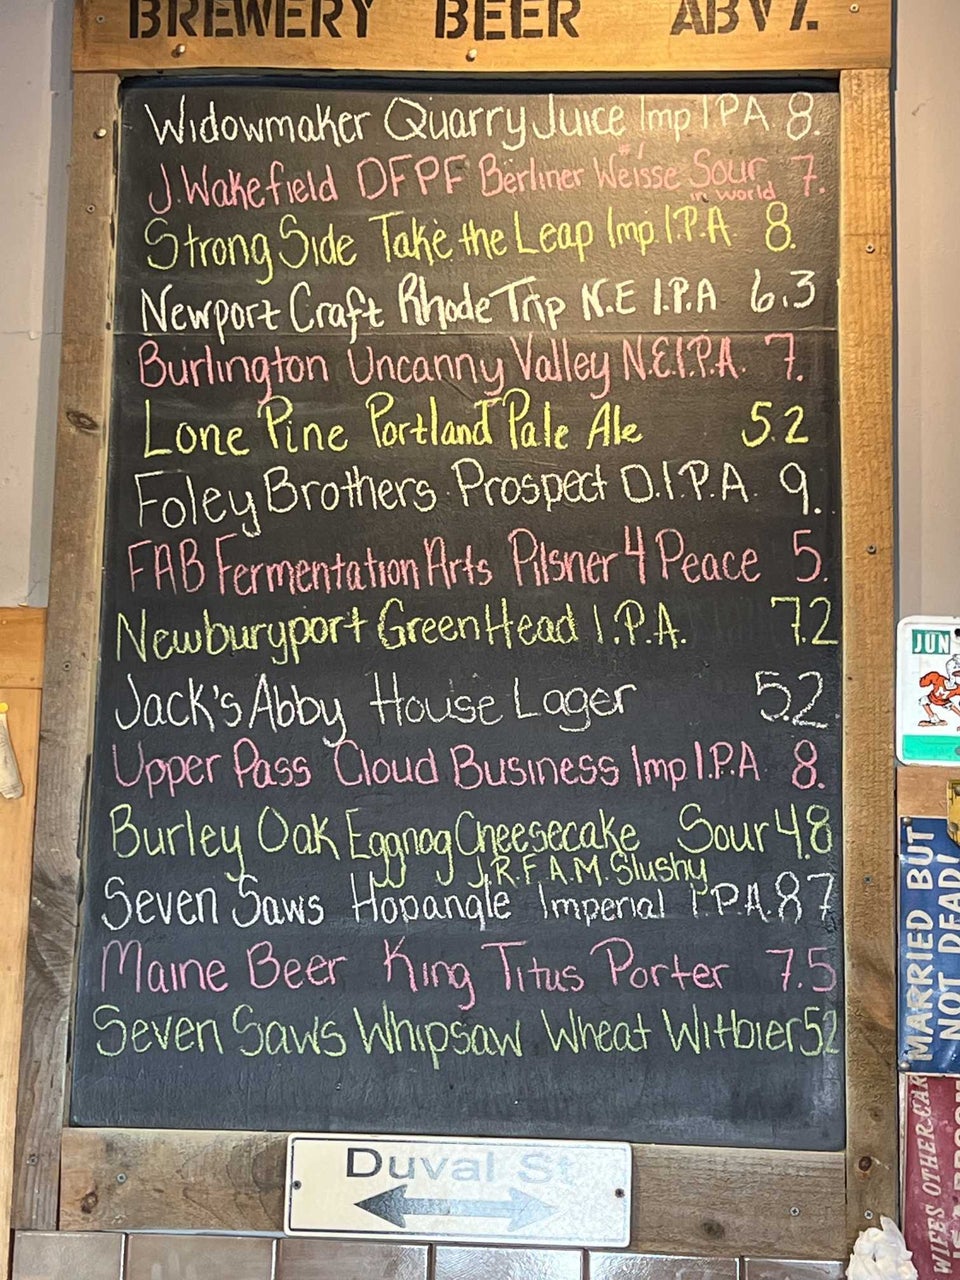 BREWERY BEER ABV%
Widowmaker Quarry Juice Imp I.P.A. 8.
J. Wakefield DFPF Berliner Weisse Sour 7.
#1 in world
Strong Side Take the Leap Imp. I.P.A 8.
Newport Craft Rhode Trip N.E I.P.A 6.3
Burlington Uncanny Valley N.E.I.P.A. 7.
Lone Pine Portland Pale Ale 5.2
Foley Brothers Prospect D.I.P.A. 9.
FAB Fermentation Arts Pilsner 4 Peace 5.
Newburyport Green Head I.P.A. 7.2
Jack's Abby House Lager 5.2
Upper Pass Cloud Business Imp I.P.A 8.
Burley Oak Eggnog Cheesecake Sour 4.8
J.R.F.A.M. Slushy
Seven Saws Hopangle Imperial I.P.A. 8.7
Maine Beer King Titus Porter 7.5
Seven Saws Whipsaw Wheat Witbier 5.2
Duval St
JUN
MARRIED BUT
NOT DEAD!
WIFES OTHER CAR